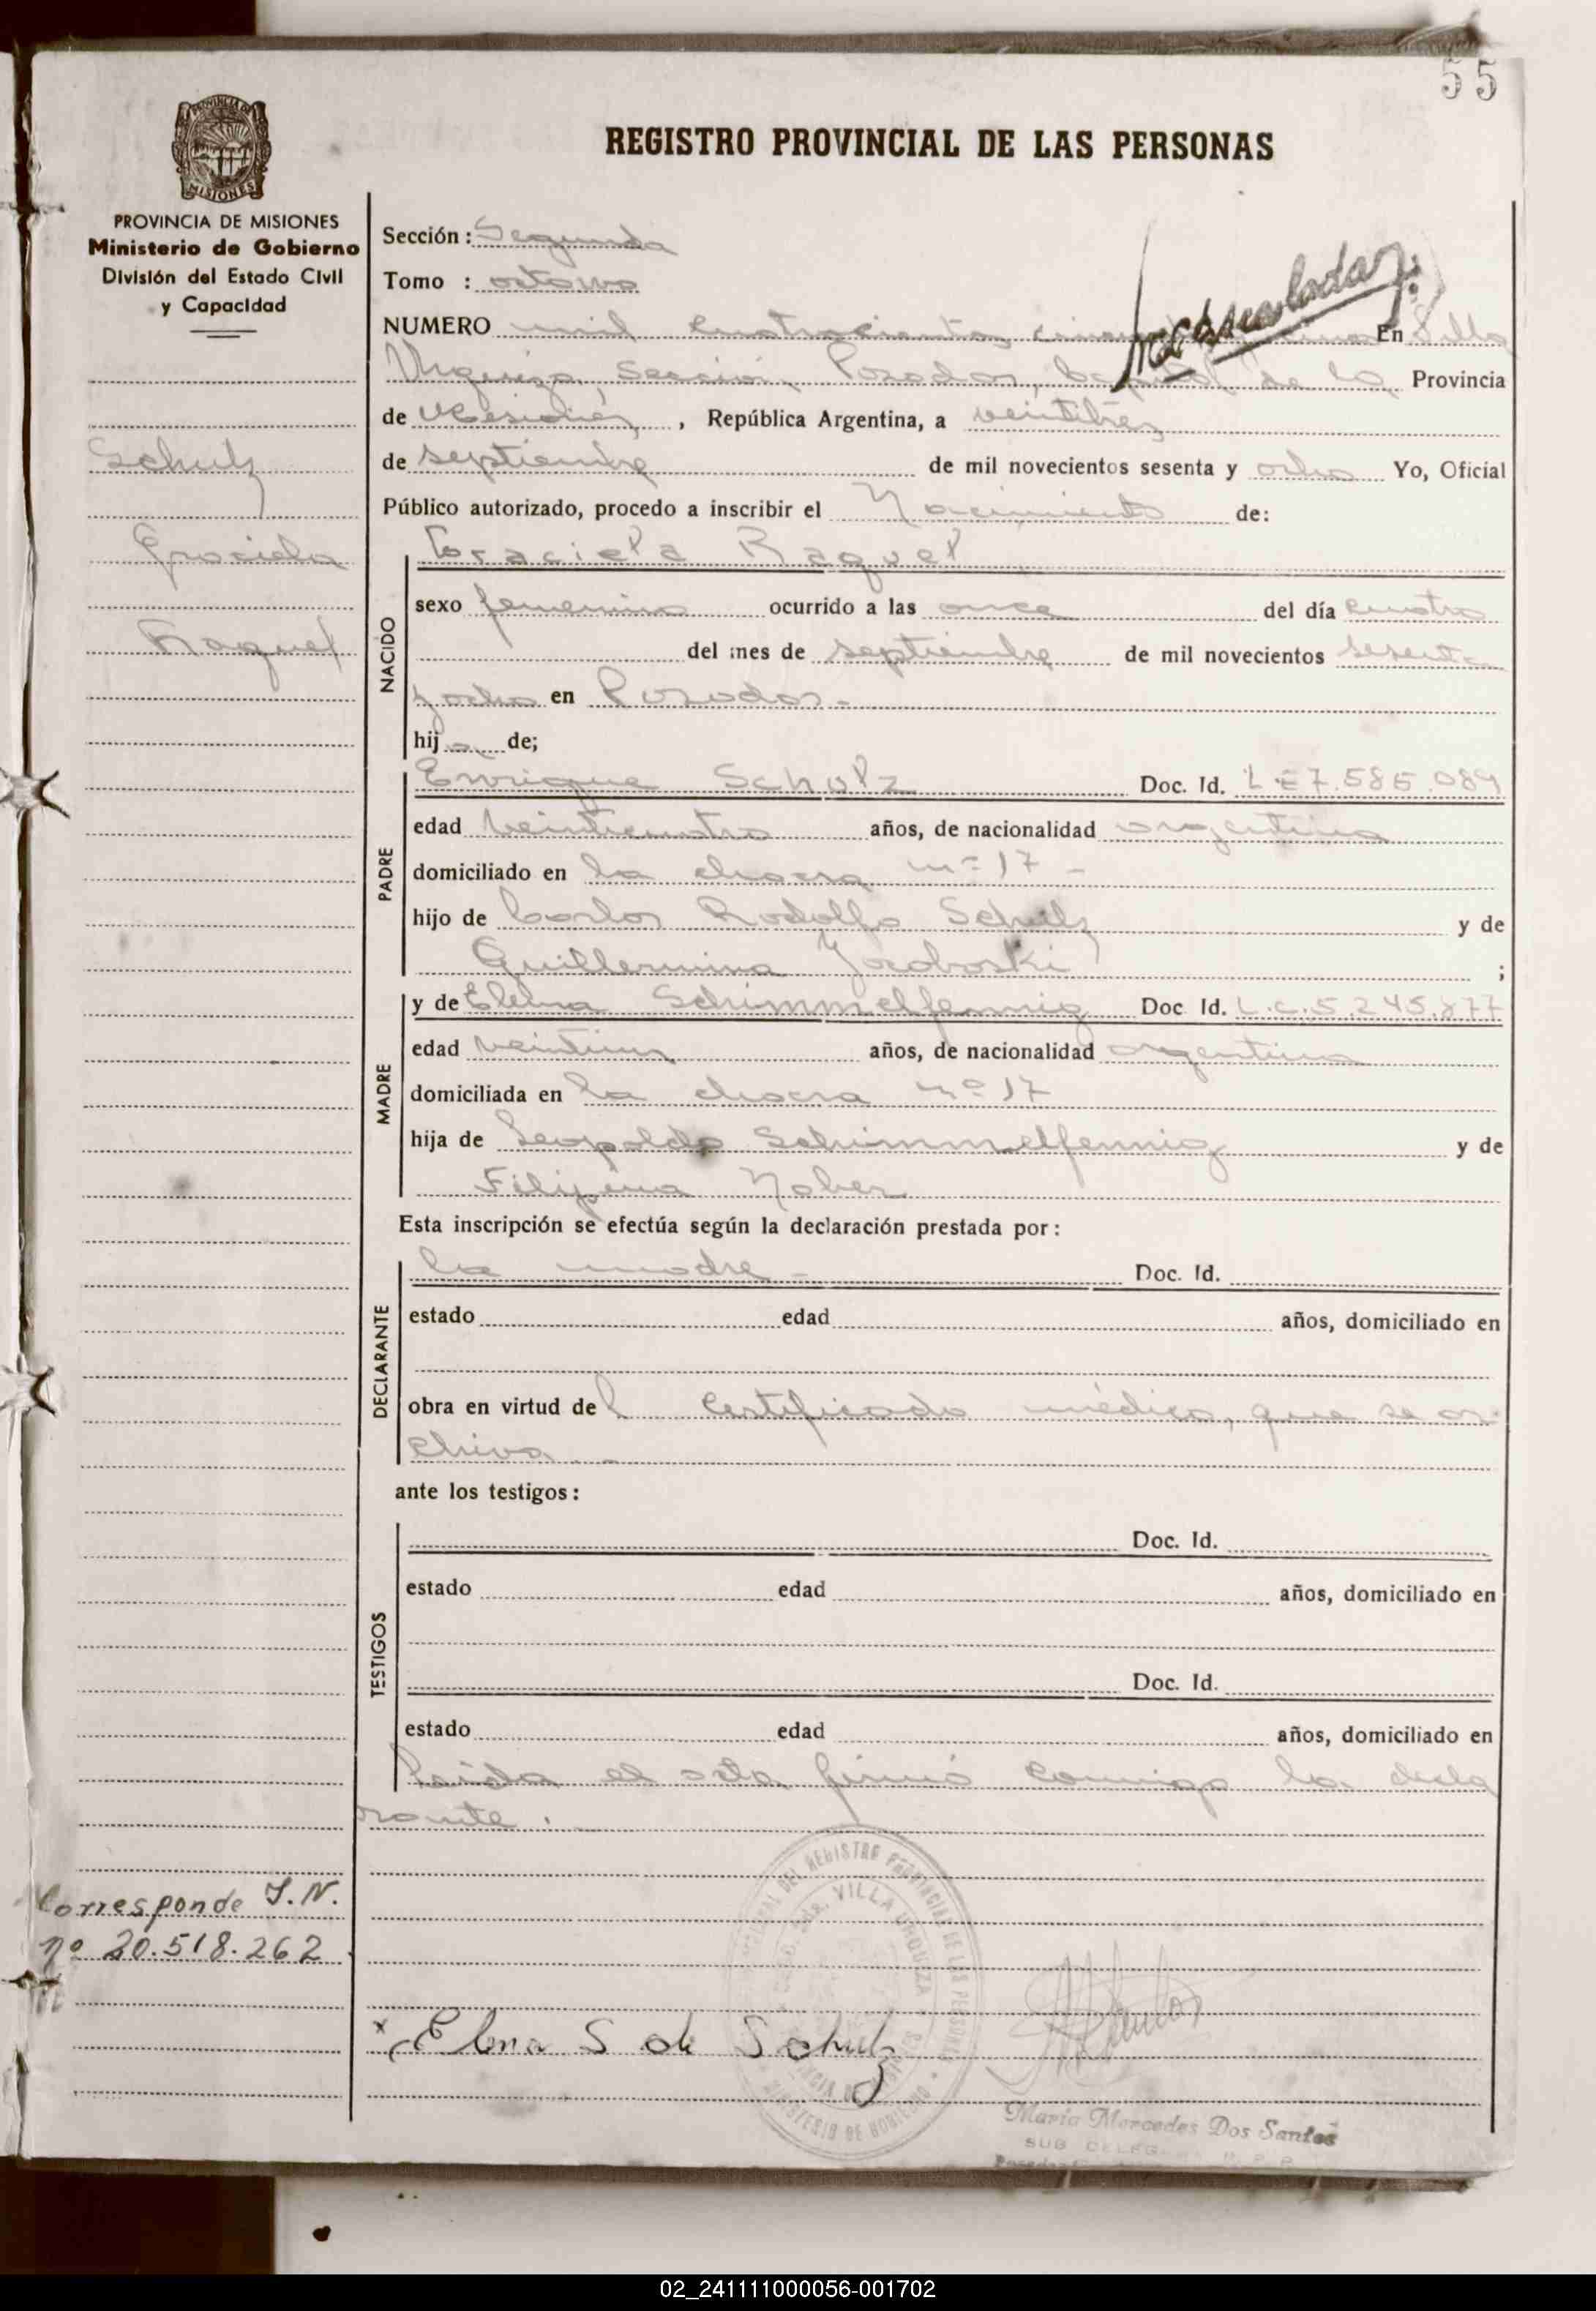 55
REGISTRO PROVINCIAL DE LAS PERSONAS
PROVINCIA DE MISIONES
Ministerio de Gobierno
División del Estado Civil
y Capacidad
Schulz
Graciela
Raquel
Corresponde I.N.
nº 20.518.262
Sección: Segunda
Tomo : octavo
NUMERO mil cuatrocientos En Villa
Urquiza, Sección Posadas, Capital de la Provincia
de Misiones, República Argentina, a veintitrés
de septiembre de mil novecientos sesenta y ocho Yo, Oficial
Público autorizado, procedo a inscribir el Nacimiento de:
NACIDO
Graciela Raquel
sexo femenino ocurrido a las once del día cuatro
del mes de septiembre de mil novecientos sesenta
y ocho en Posadas.-
hija de;
PADRE
Enrique Schulz Doc. Id. L.E 7.585.089
edad veinticuatro años, de nacionalidad argentina
domiciliado en la chacra nº 17 -
hijo de Carlos Rodolfo Schulz y de
Guillermina ;
MADRE
y de Elena Schimmelfennig Doc. Id. L.C. 5.245.877
edad veintiun años, de nacionalidad argentina
domiciliada en la chacra nº 17
hija de Leopoldo Schimmelfennig y de
Filipina Nober
Esta inscripción se efectúa según la declaración prestada por:
DECLARANTE
la madre - Doc. Id.
estado edad años, domiciliado en
obra en virtud del certificado médico, que se ar-
chiva.-
ante los testigos:
TESTIGOS
Doc. Id.
estado edad años, domiciliado en
Doc. Id.
estado edad años, domiciliado en
Leída el acta firmó conmigo la decla
rante.-
x Elena S de Schulz
VILLA URQUIZA
MINISTERIO DE GOBIERNO
María Mercedes Dos Santos
SUB DELEG
02_241111000056-001702